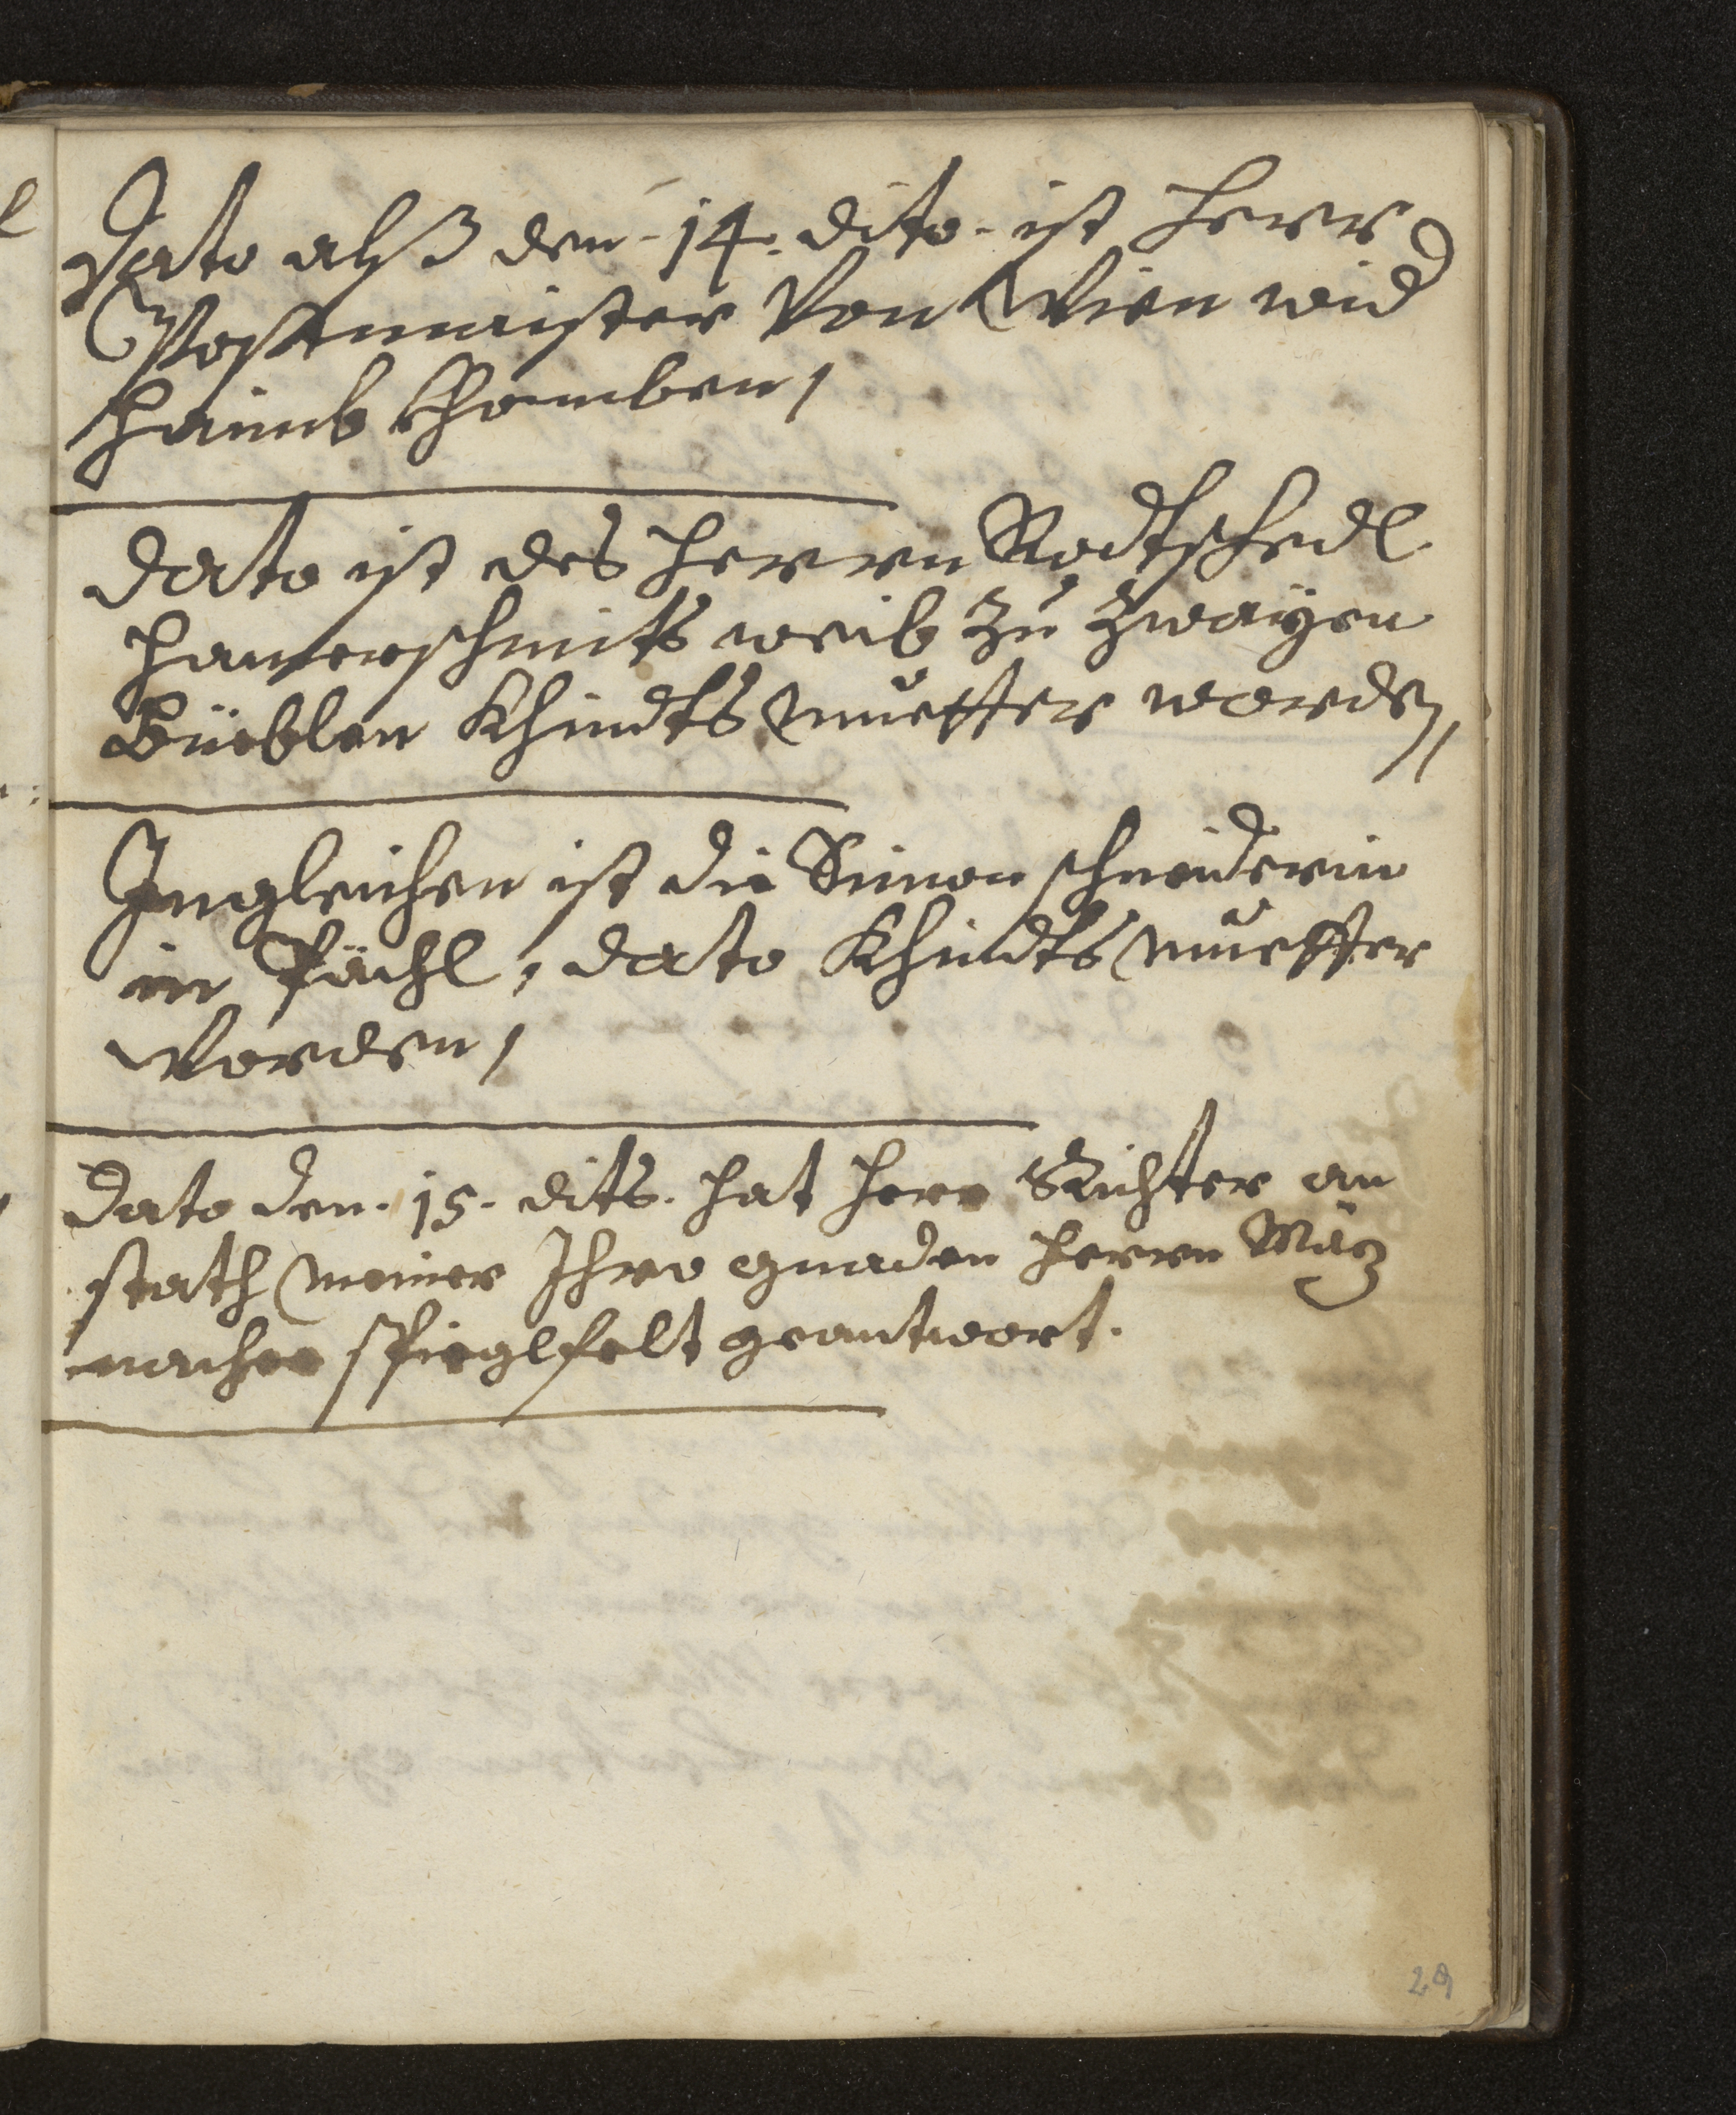 Dato alß den 14. dito ist Herr
Postmaister Von Wien wid
Haimb Khomben /
Dato ist des Herrn Rodtschedl
Hamerschmits weib Zu Zwayen
Büeblen Khindts Muetter worden /
Ingleichen ist die Simon schneiderin
in Pächl, dato Khindts Muetter
Worden /
Dato den 15. dits. hat Herr Richter an
stath meiner Ihro gnaden Herrn
nacher Spieglfelt geantwort.
29